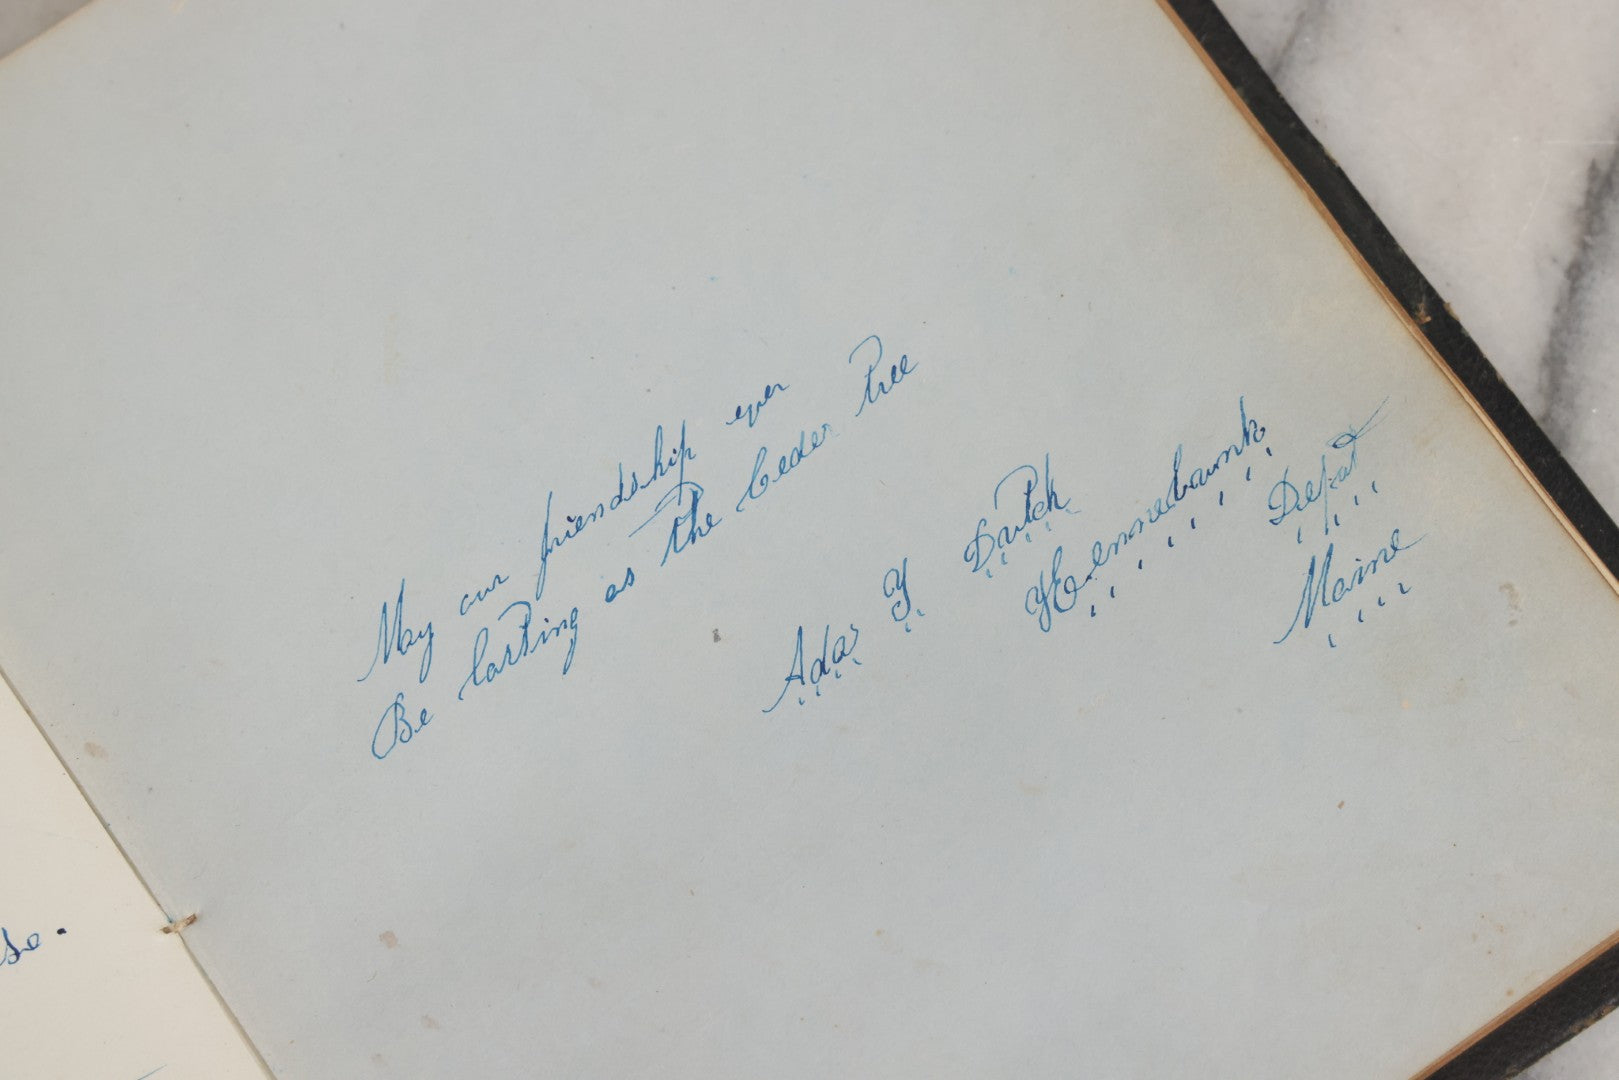 so.
May our friendship ever
Be lasting as the Ceder tree
Adas Y Dutch
Kennebunk
Depot
Maine